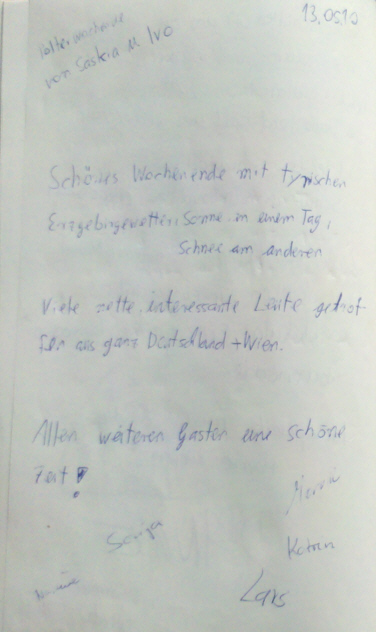 13.05.10
Polterwochenende
von Saskia u Ivo
Schönes Wochenende mit typischen
Erzgebirgewetter, Sonne an einem Tag,
Schnee am anderen
Viele nette, interessante Leute getrof
fen aus ganz Deutschland + Wien.
Allen weiteren Gästen eine schöne
Zeit!
Katrin
Lars